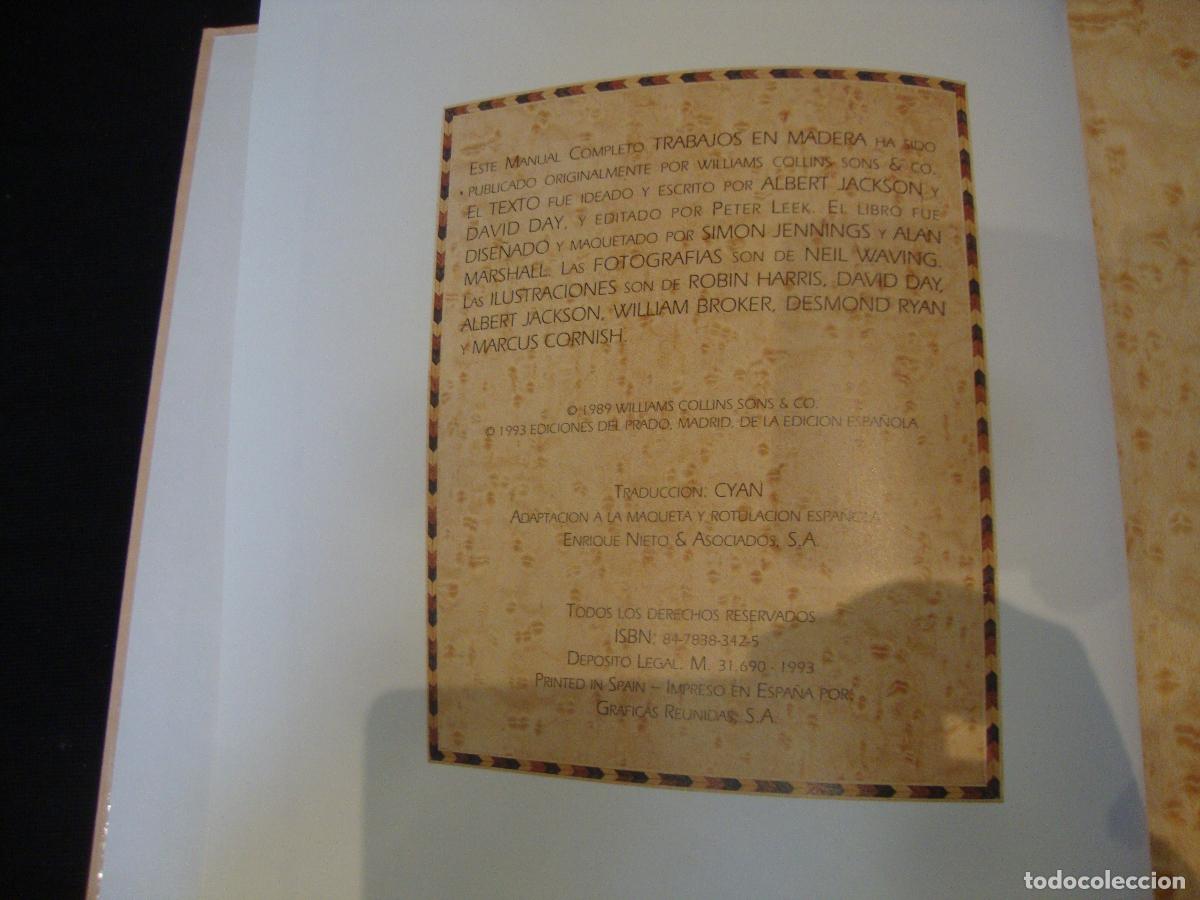 ESTE MANUAL COMPLETO TRABAJOS EN MADERA HA SIDO
PUBLICADO ORIGINALMENTE POR WILLIAMS COLLINS SONS & CO.
EL TEXTO FUE IDEADO Y ESCRITO POR ALBERT JACKSON Y
DAVID DAY, Y EDITADO POR PETER LEEK. EL LIBRO FUE
DISEÑADO Y MAQUETADO POR SIMON JENNINGS Y ALAN
MARSHALL. LAS FOTOGRAFIAS SON DE NEIL WAVING.
LAS ILUSTRACIONES SON DE ROBIN HARRIS, DAVID DAY,
ALBERT JACKSON, WILLIAM BROKER, DESMOND RYAN
Y MARCUS CORNISH.
© 1989 WILLIAMS COLLINS SONS & CO.
© 1993 EDICIONES DEL PRADO, MADRID, DE LA EDICION ESPAÑOLA
TRADUCCION: CYAN
ADAPTACION A LA MAQUETA Y ROTULACION ESPAÑOLA
ENRIQUE NIETO & ASOCIADOS, S.A.
TODOS LOS DERECHOS RESERVADOS
ISBN: 84-7838-342-5
DEPOSITO LEGAL. M. 31.690 - 1993
PRINTED IN SPAIN – IMPRESO EN ESPAÑA POR:
GRAFICAS REUNIDAS, S.A.
todocoleccion